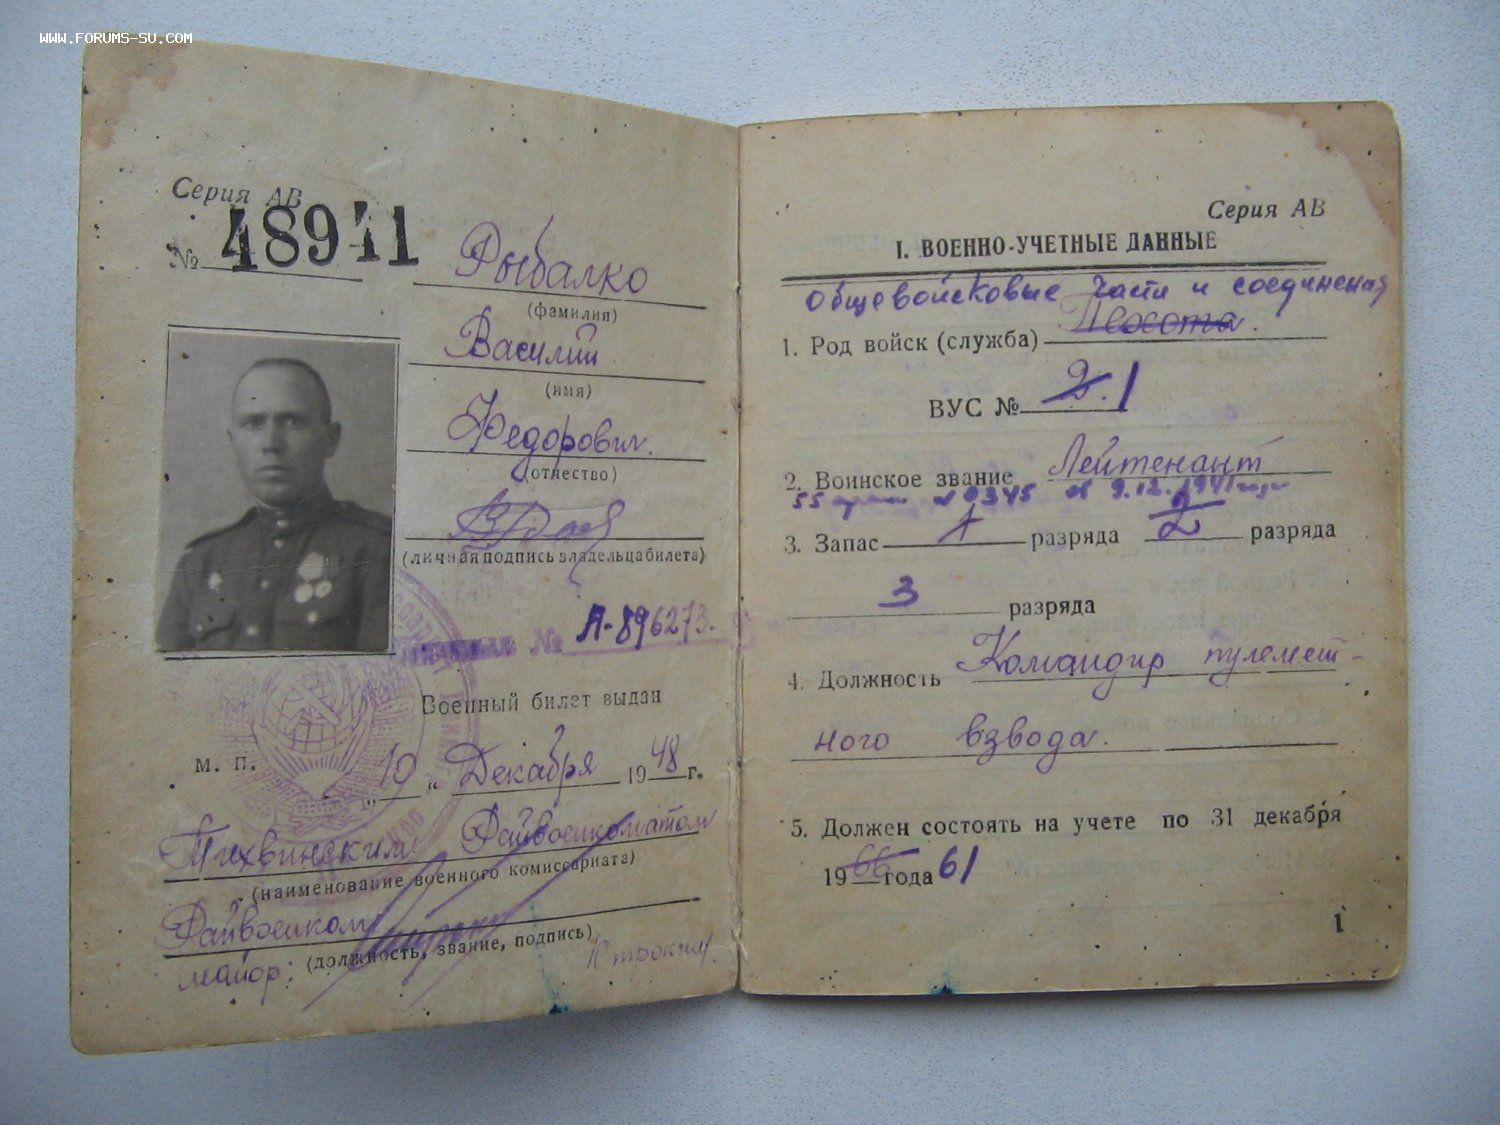 WWW.FORUMS-SU.COM
Серия АВ
№ 48941
Рыбалко
(фамилия)
Василий
(имя)
Федорович
(отчество)
(личная подпись владельца билета)
№ А-896273.
Военный билет выдан
м. п.
„10“ Декабря 1948 г.
Тихвинским Райвоенкоматом
(наименование военного комиссариата)
Райвоенком
(должность, звание, подпись)
майор:
Серия АВ
I. ВОЕННО-УЧЕТНЫЕ ДАННЫЕ
Общевойсковые части и соединения
1. Род войск (служба) Пехота.
ВУС № 2. 1
2. Воинское звание Лейтенант
55 № 0345 от 9.12.1941 года
3. Запас 1 разряда 2 разряда
3 разряда
4. Должность Командир пулемет-
ного взвода.
5. Должен состоять на учете по 31 декабря
1966 года 61
1